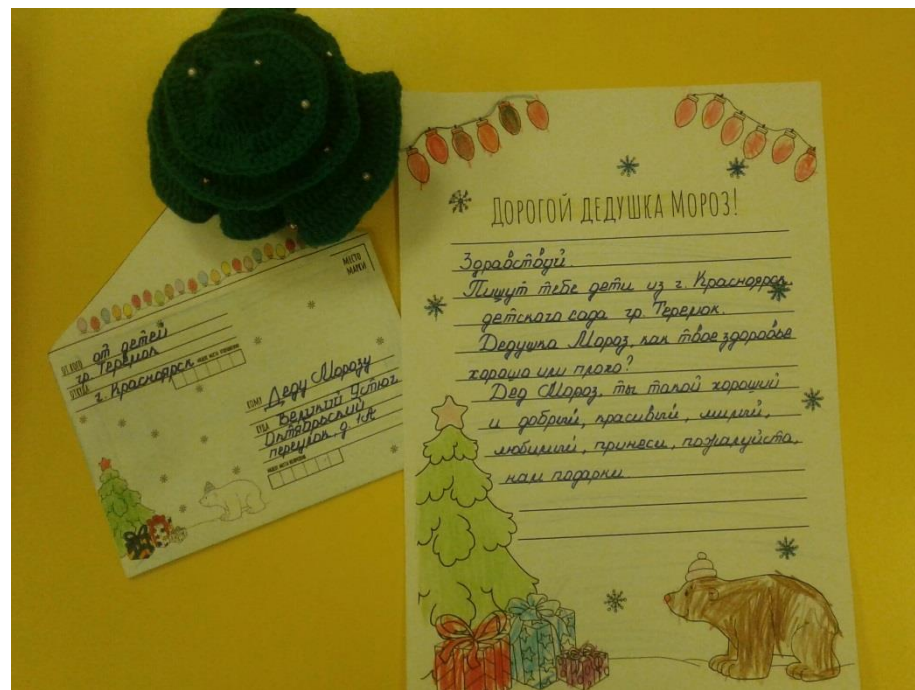 МЕСТО
МАРКИ
ОТ КОГО от детей
гр. Теремок
ОТКУДА г. Красноярск
КОМУ Деду Морозу
КУДА Великий Устюг
Октябрьский
переулок, д. 1А
ДОРОГОЙ ДЕДУШКА МОРОЗ!
Здравствуй.
Пишут тебе дети из г. Красноярск
детского сада гр. Теремок.
Дедушка Мороз, как твое здоровье
хорошо или плохо?
Дед Мороз, ты такой хороший
и добрый, красивый, милый,
любимый, принеси, пожалуйста,
нам подарки.